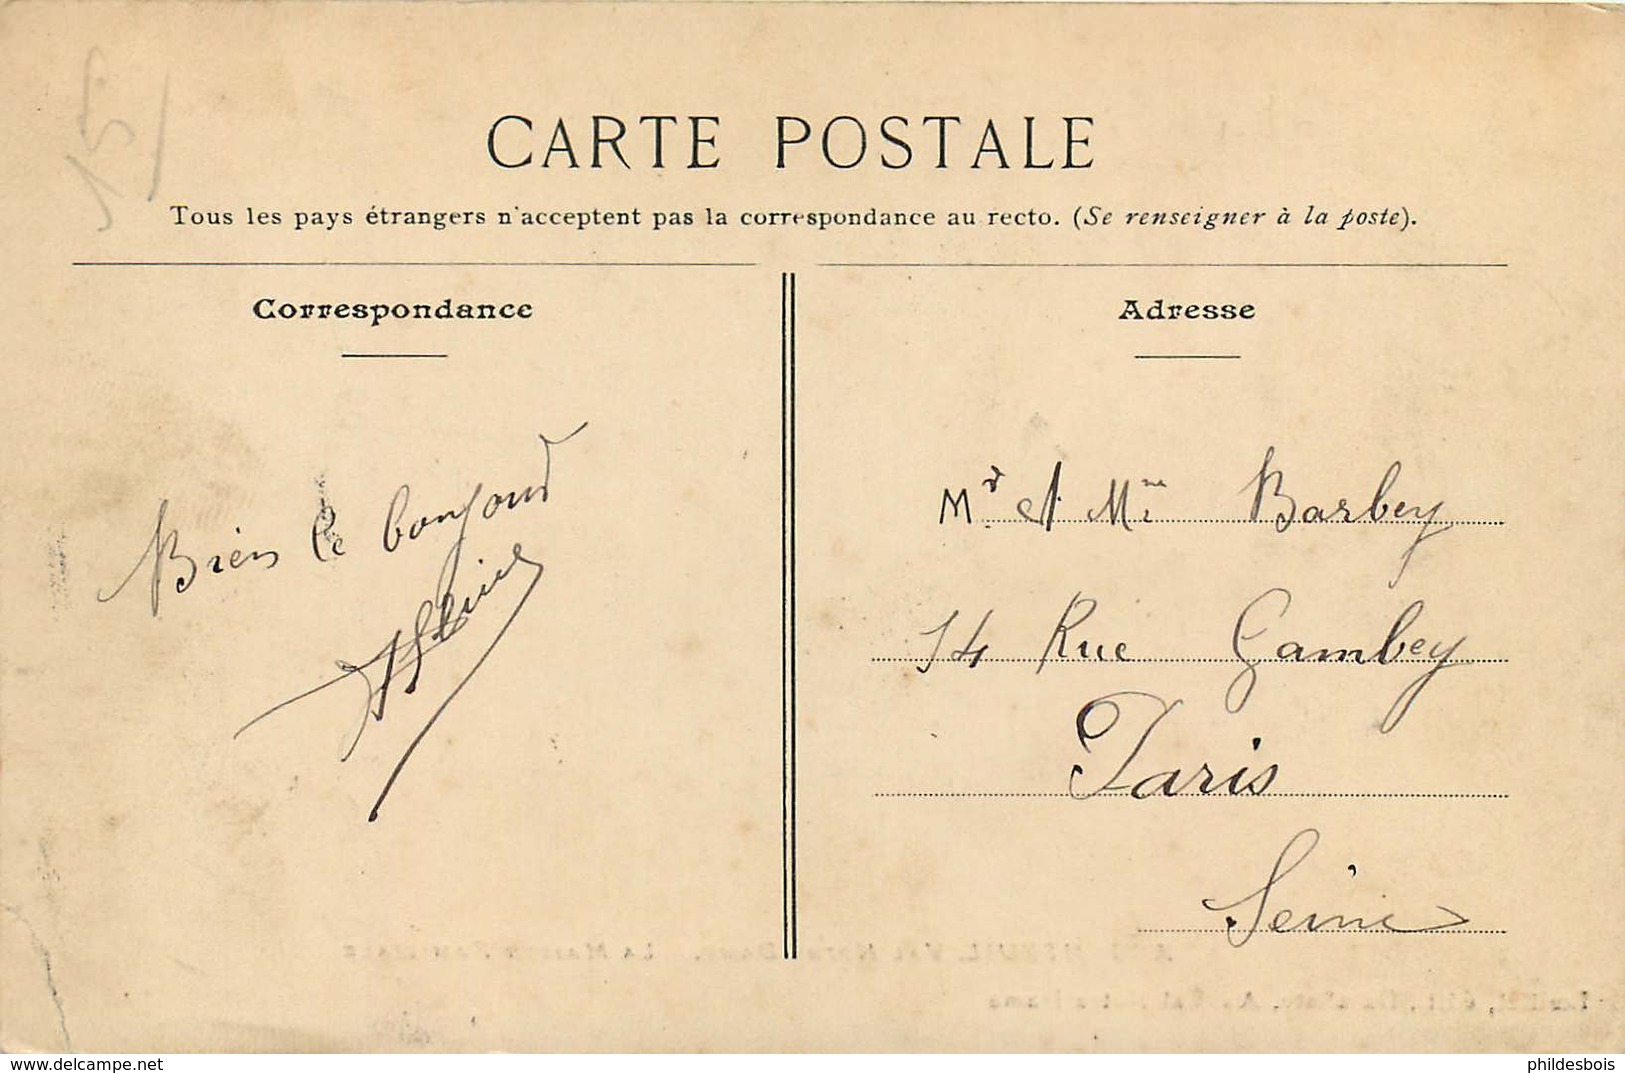 15
CARTE POSTALE
Tous les pays étrangers n'acceptent pas la correspondance au recto. (Se renseigner à la poste).
Correspondance
Bien le bonjour
Adresse
Mr et Mme Barbey
14 Rue Gambey
Paris
Seine
www.delcampe.net
phildesbois